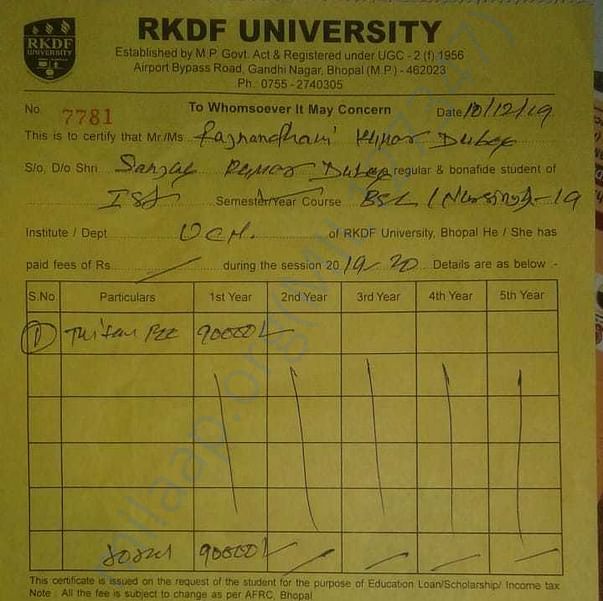 RKDF UNIVERSITY
RKDF
UNIVERSITY
Established by M.P. Govt. Act & Registered under UGC - 2 (f) 1956
Airport Bypass Road, Gandhi Nagar, Bhopal (M.P.) - 462023
Ph. 0755 - 2740305
No. 7781 To Whomsoever It May Concern Date 10/12/19
This is to certify that Mr./Ms. Kumar Dubey
S/o, D/o Shri Sanjay Kumar Dubey regular & bonafide student of
Ist Semester/Year Course BSc (Nursing)-19
Institute / Dept of RKDF University, Bhopal He / She has
paid fees of Rs. during the session 2019-20 Details are as below :-
S.No. Particulars 1st Year 2nd Year 3rd Year 4th Year 5th Year
1 Tuition Fee 90000/-
Total 90000/-
This certificate is issued on the request of the student for the purpose of Education Loan/Scholarship/ Income tax
Note : All the fee is subject to change as per AFRC, Bhopal